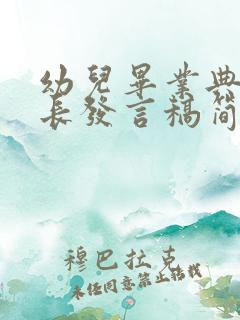 幼兒畢業典
長發言稿簡
穆巴拉克
未经同意禁止转载